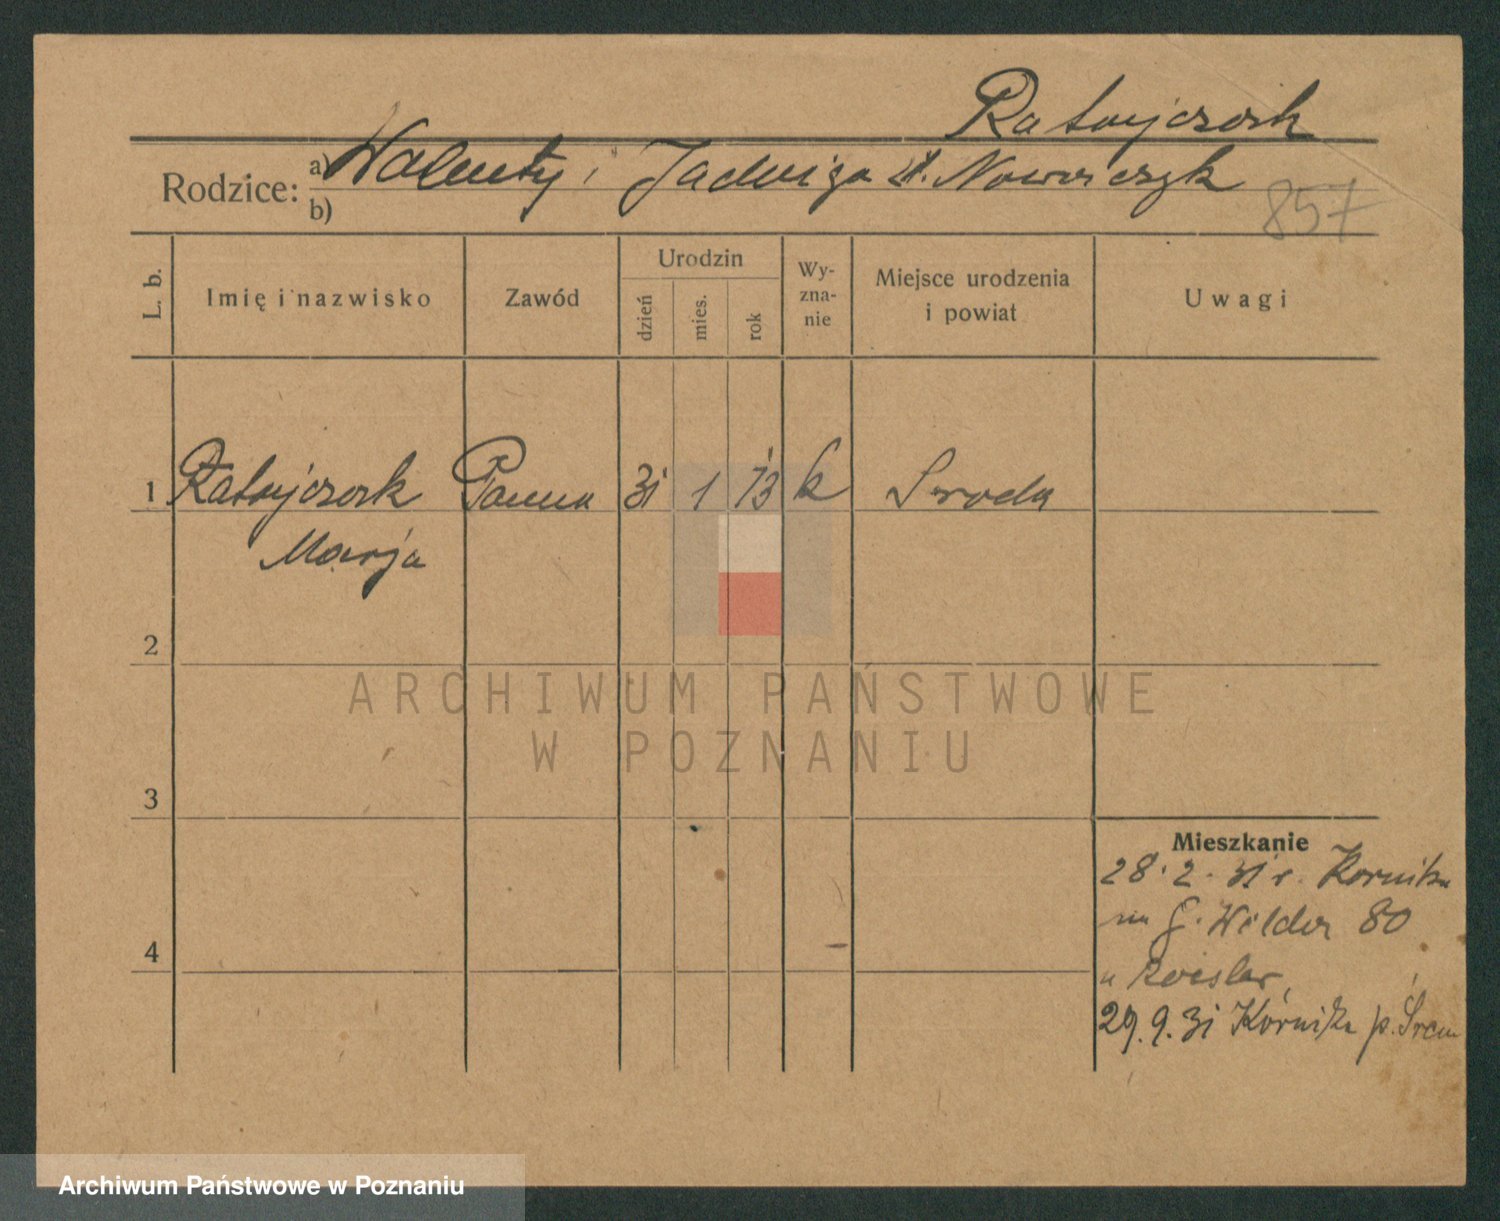 Ratajczak
Rodzice: a) Walenty i Jadwiga z d. Nowaczyk
b)
857
L. b.
Imię i nazwisko
Zawód
Urodzin
dzień
mies.
rok
Wy-
zna-
nie
Miejsce urodzenia
i powiat
Uwagi
1 Ratajczak Panna 31 1 13 k Sroda
Marja
2
3
4
Mieszkanie
28.2.31 r. Kornika
na G. Wilda 80
u
29.9.31 Kórnika p. Śrem
ARCHIWUM PAŃSTWOWE
W POZNANIU
Archiwum Państwowe w Poznaniu